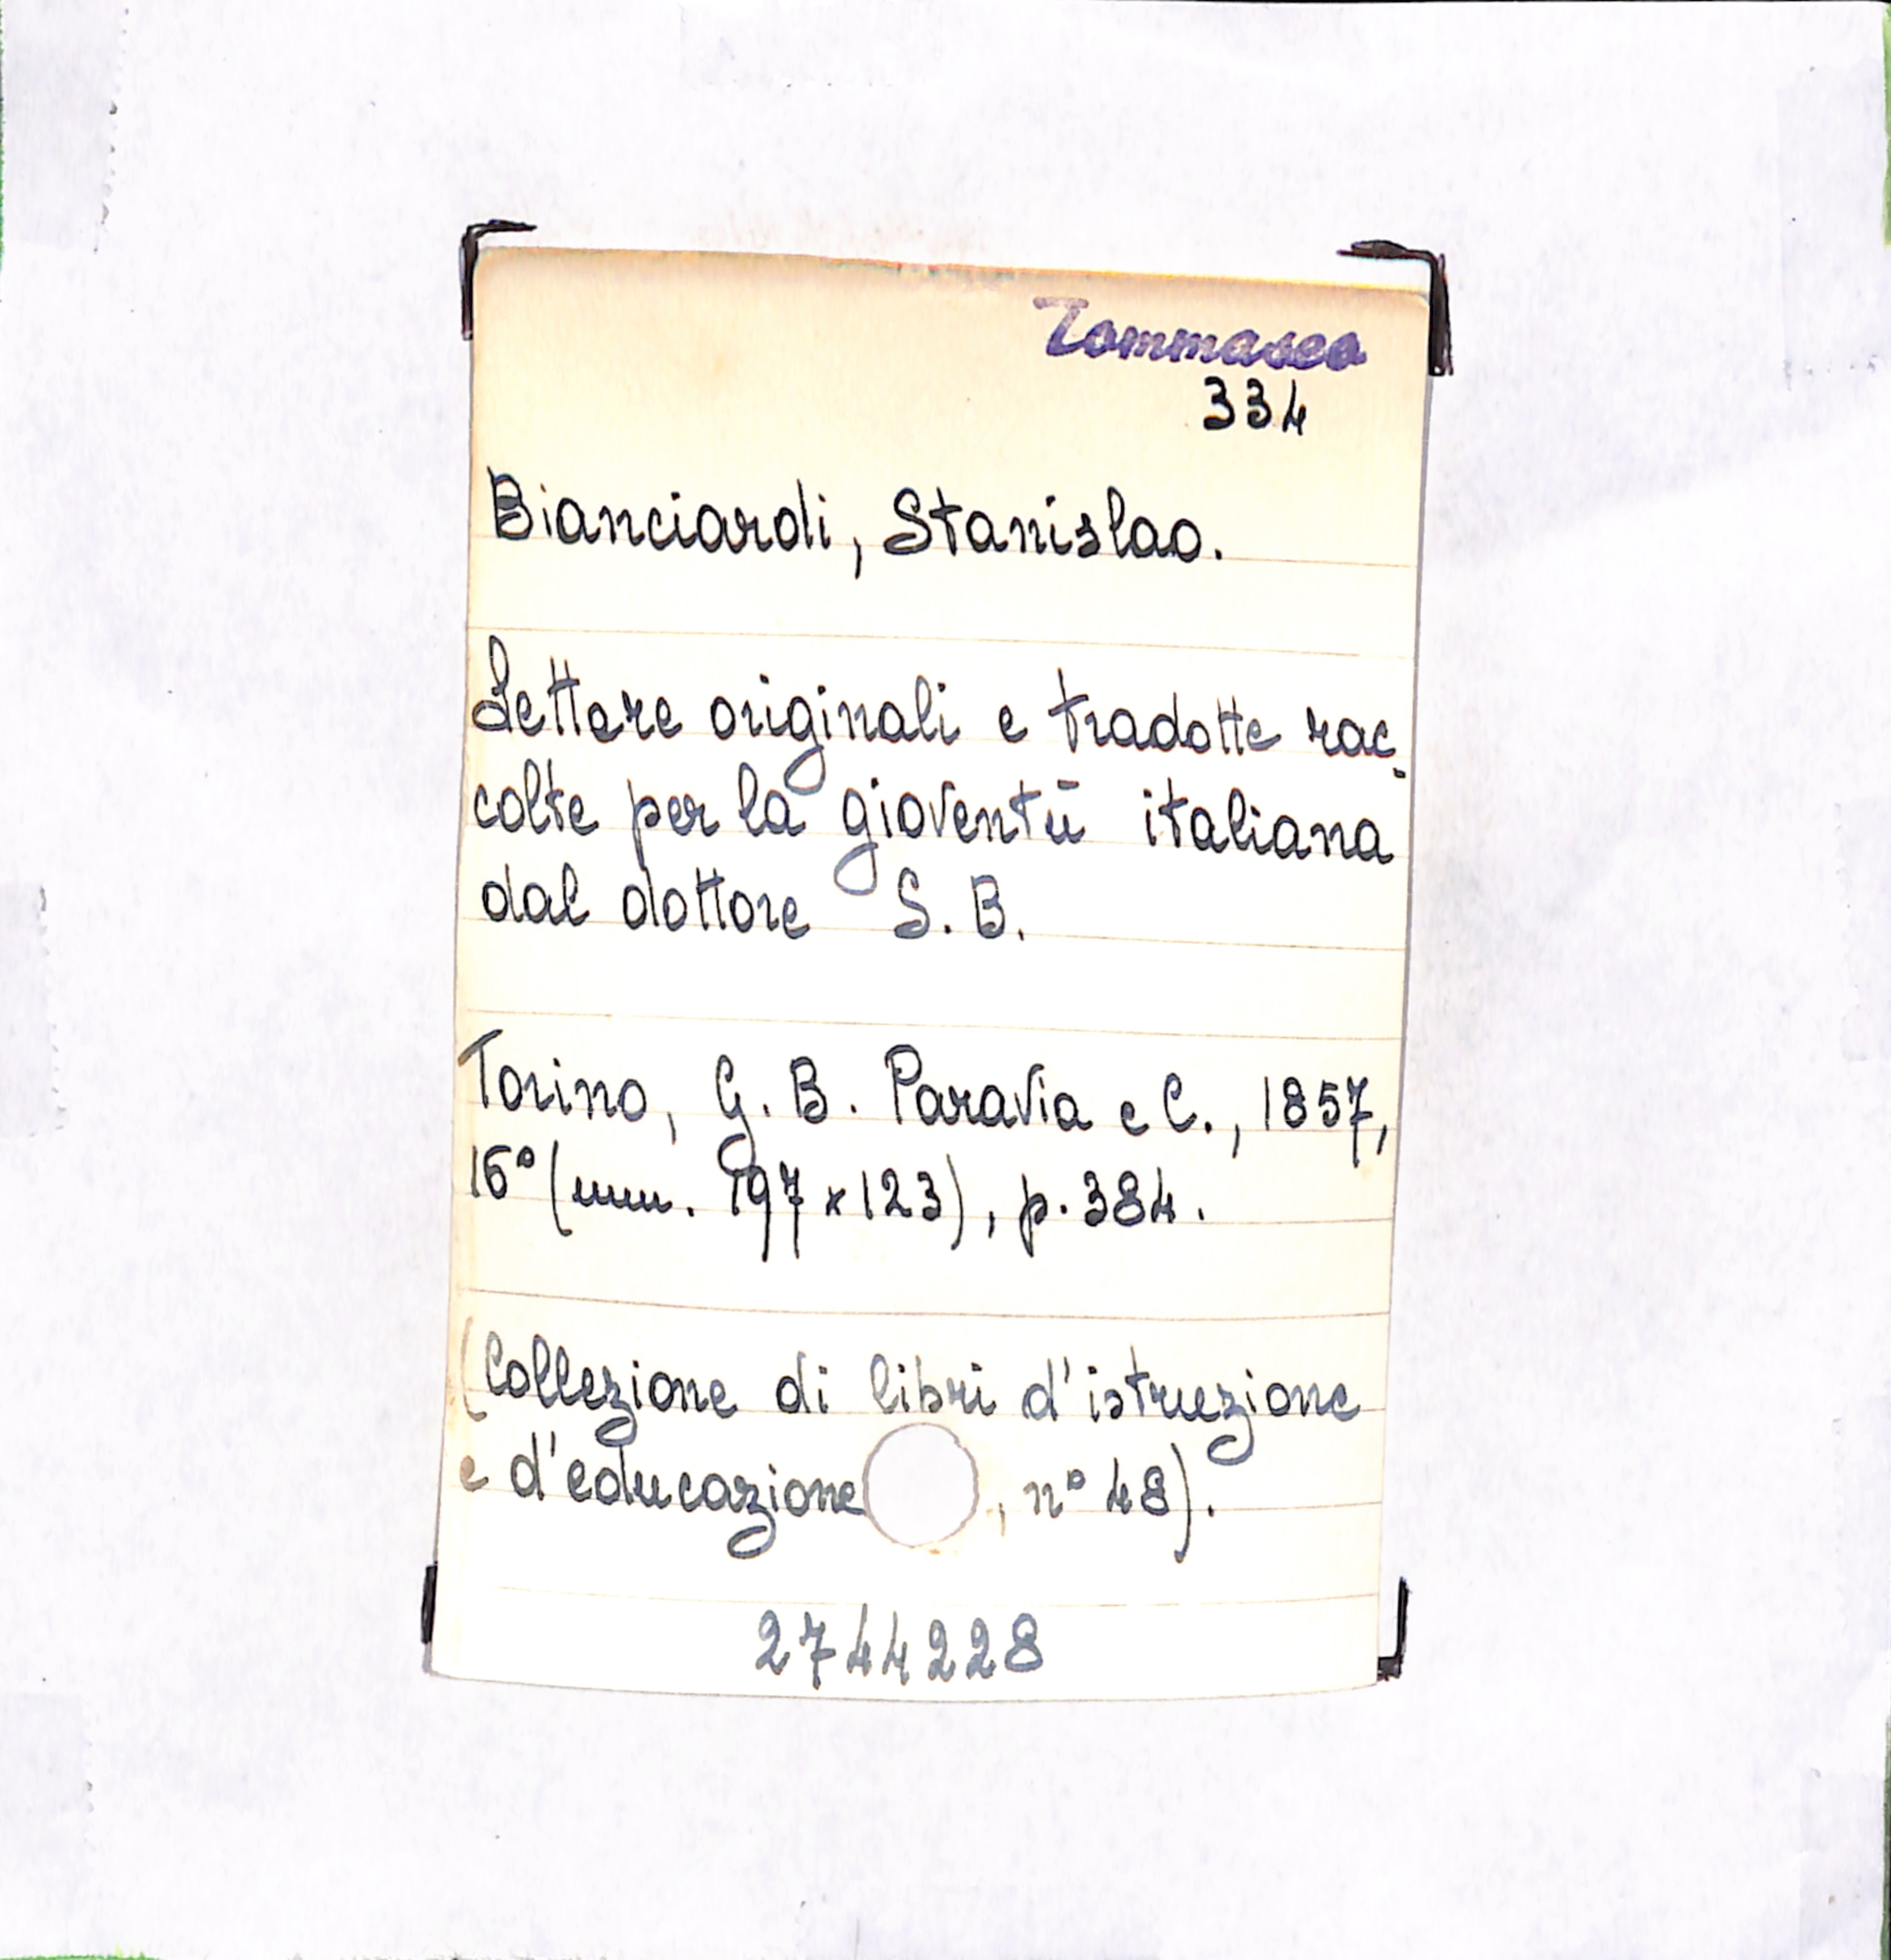 Tommaseo
334
Bianciardi, Stanislao.
Lettere originali e tradotte rac-
colte per la gioventù italiana
dal dottore S. B.
Torino, G. B. Paravia e C., 1857,
16° (mm. 197 x 123), p. 384.
(Collezione di libri d'istruzione
e d'educazione, n° 48).
2744228